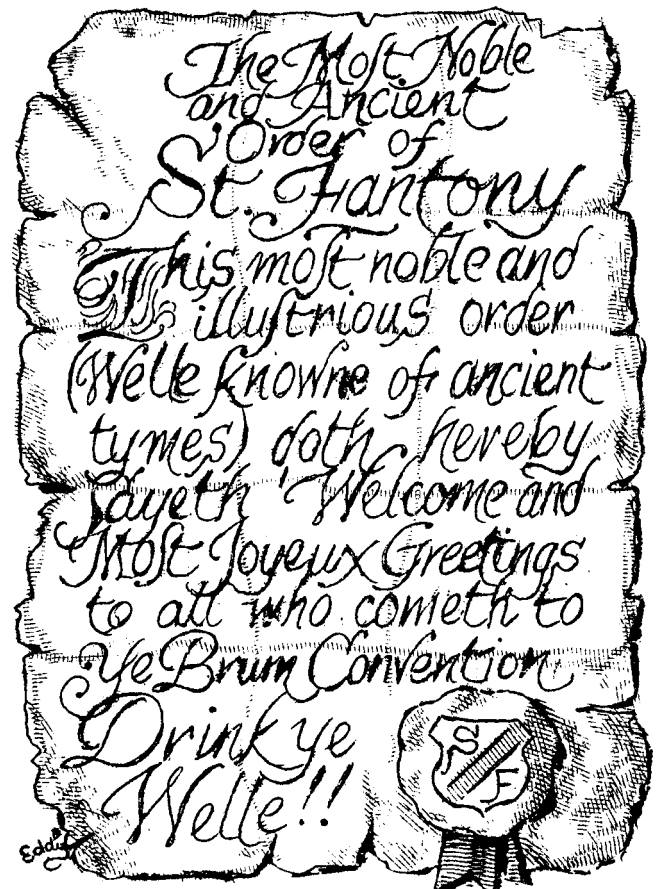 The Moſt Noble
and Ancient
Order of
St. Fantony
This moſt noble and
illuſtrious order
(Welle knowne of ancient
tymes) doth hereby
ſayeth 'Welcome and
Moſt Joyeux Greetings
to all who cometh to
Ye Brum Convention
Drink ye
Welle!!
S
F
Eddie